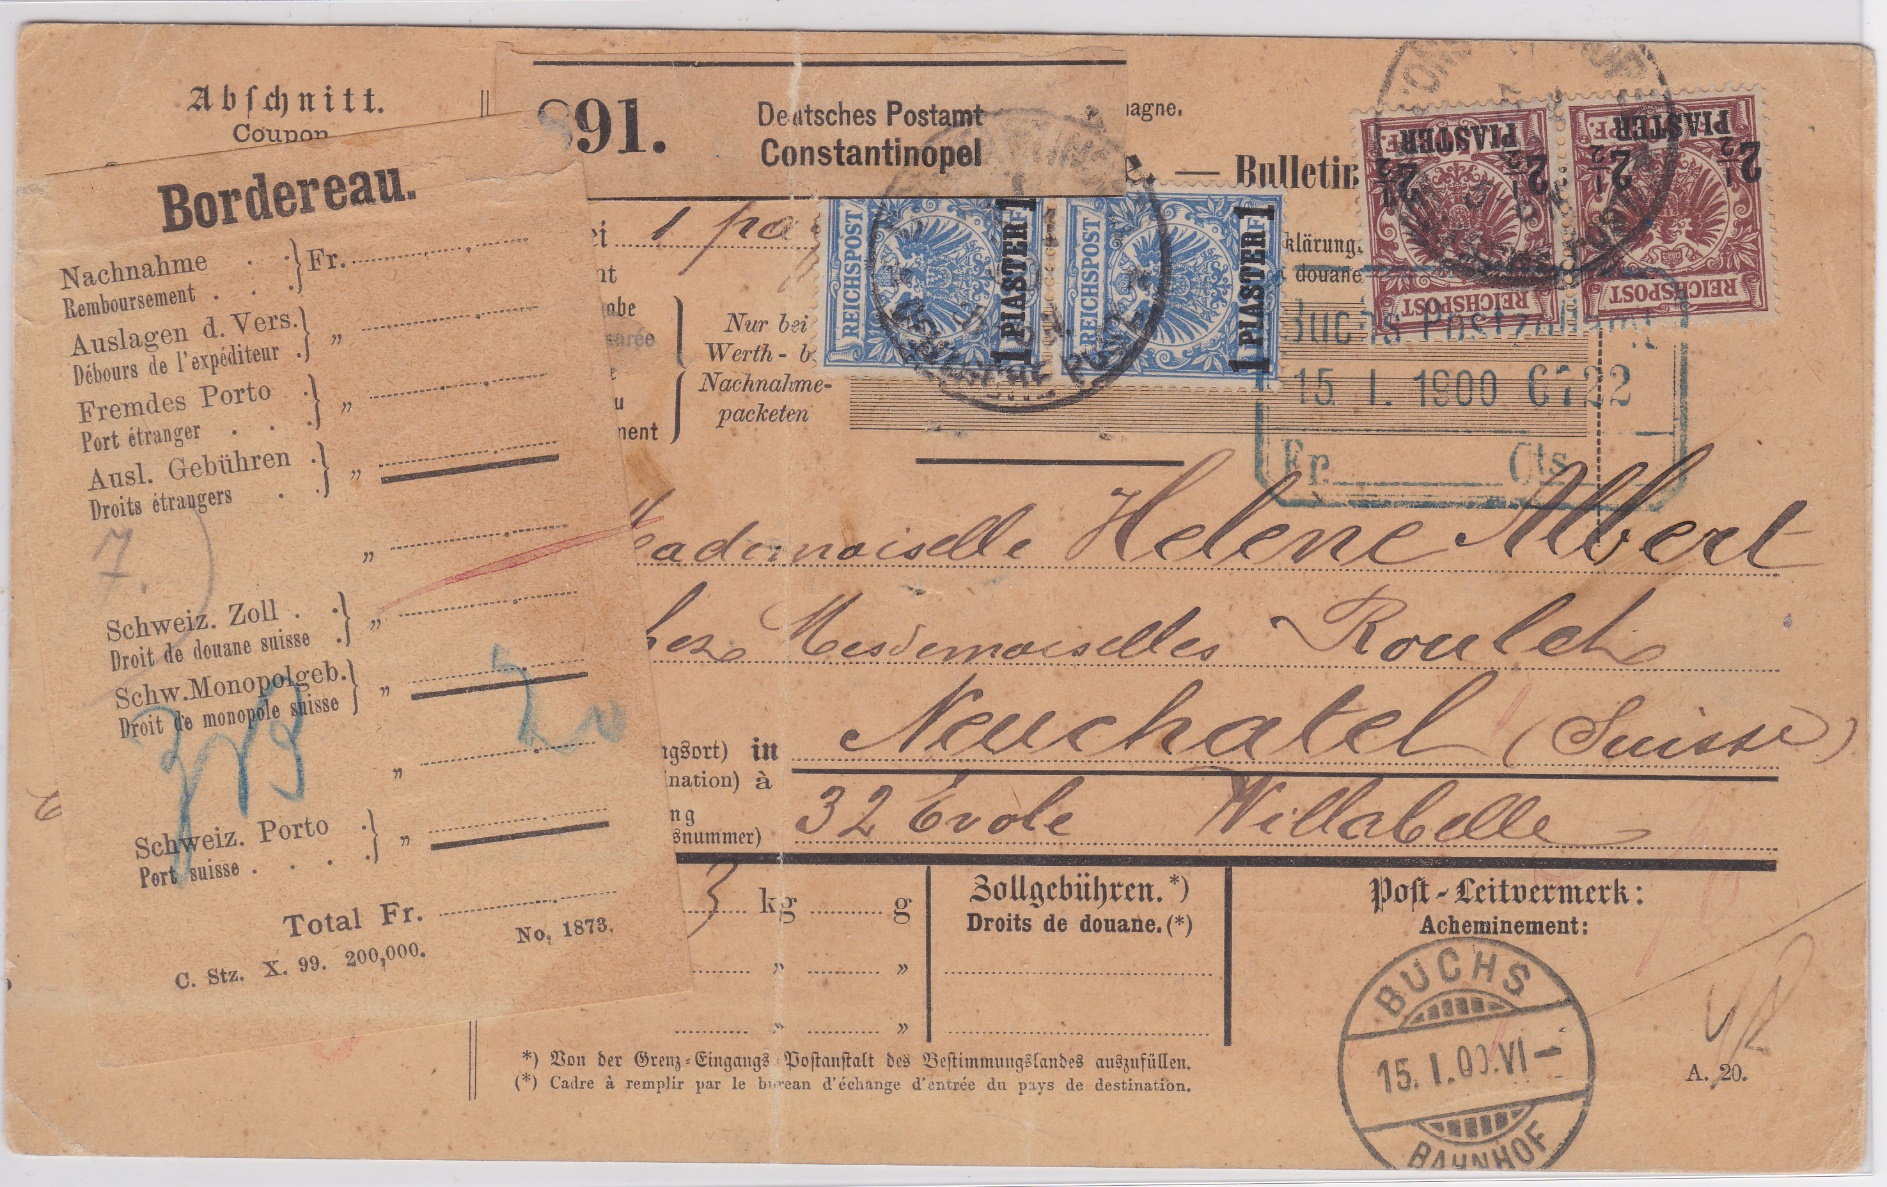 Abschnitt.
Coupon
891.
Deutsches Postamt
Constantinopel
magne.
— Bulletin
Bordereau.
Nachnahme . . } Fr.
Remboursement . . .
Auslagen d. Vers. } „
Débours de l'expéditeur .
Fremdes Porto . } „
Port étranger . . .
Ausl. Gebühren . } „
Droits étrangers . .
„
7.
Schweiz. Zoll . . } „
Droit de douane suisse .
Schw. Monopolgeb. } „
Droit de monopole suisse
„
20
Schweiz. Porto . } „
Port suisse . . . .
Total Fr.
C. Stz. X. 99. 200,000. No. 1873.
ei 1
nt
abe
u
ment
Nur bei
Werth- b
Nachnahme-
packeten
klärung.
douane
REICHSPOST
1 PIASTER 1
REICHSPOST
1 PIASTER 1
2½ PIASTER 2½
REICHSPOST
2½ PIASTER 2½
REICHSPOST
Buchs Postzollamt
15. I. 1900 6722
Fr. Cts
Mademoiselle Helene Albert
chez Mesdemoiselles Roulet
ngsort) in Neuchatel (Suisse)
ination) à
ng
snummer) 32 Evole Willabelle
3 kg g
„ „
„ „
Zollgebühren. *)
Droits de douane. (*)
Post-Leitvermerk:
Acheminement:
BUCHS
15. I. 00. VI –
BAHNHOF
*) Von der Grenz-Eingangs-Postanstalt des Bestimmungslandes auszufüllen.
(*) Cadre à remplir par le bureau d'échange d'entrée du pays de destination.
A. 20.